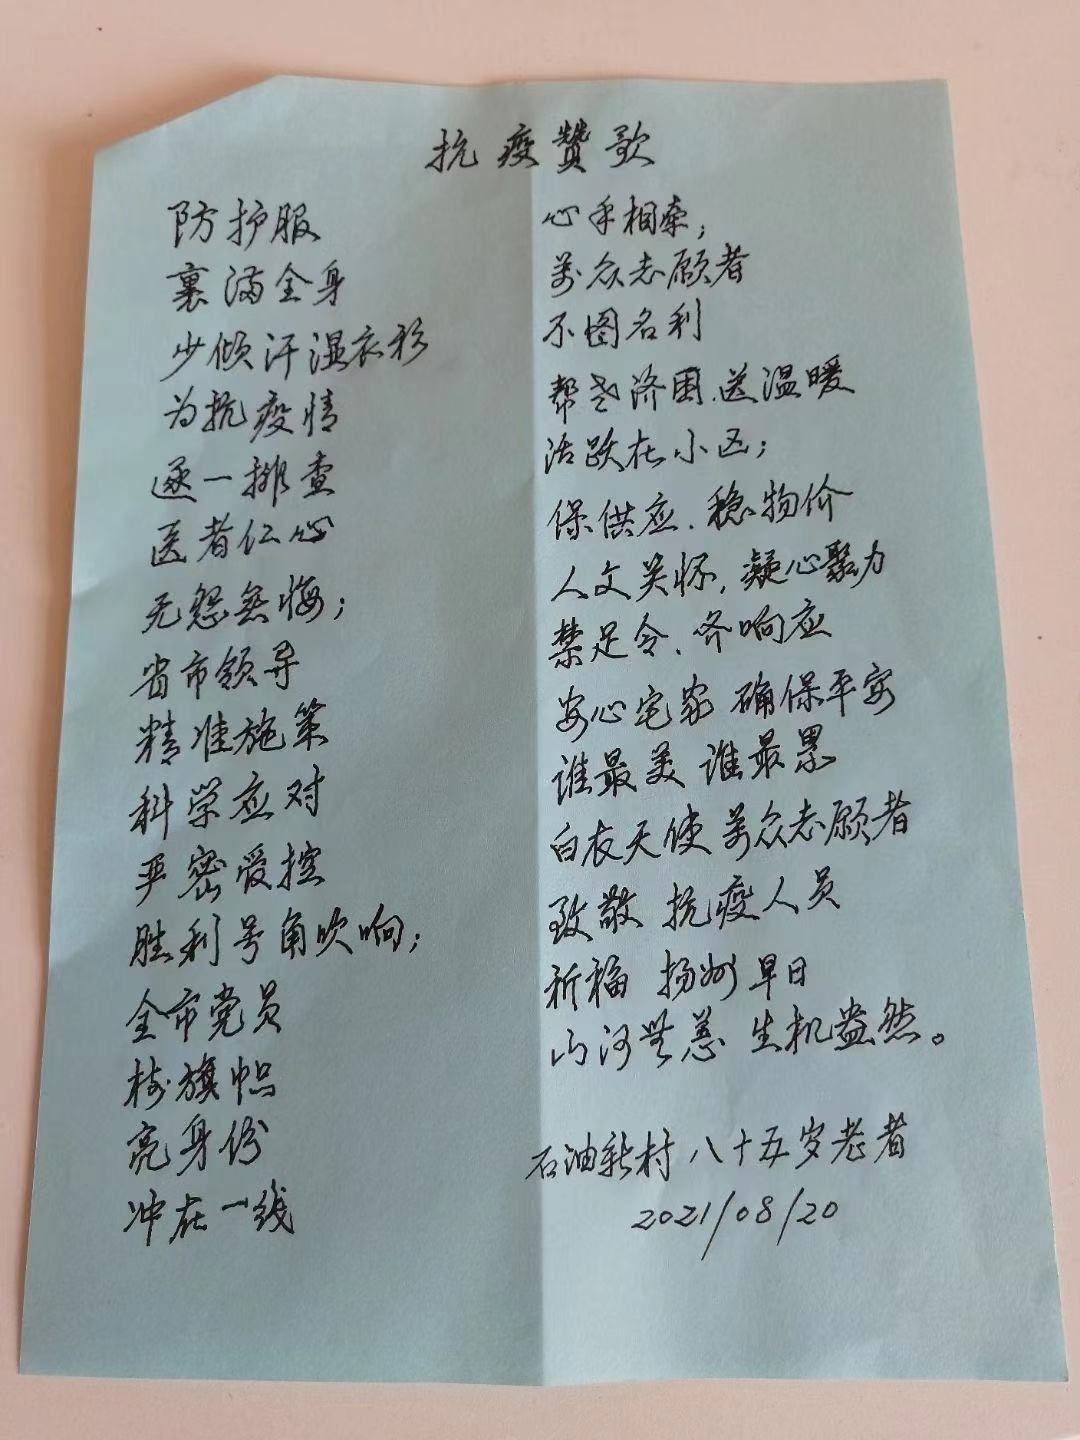 抗疫赞歌
防护服
裹满全身
少倾汗湿衣衫
为抗疫情
逐一排查
医者仁心
无怨無悔；
省市领导
精准施策
科学应对
严密受控
胜利号角吹响；
全市党员
树旗帜
亮身份
冲在一线
心手相牵；
万众志愿者
不图名利
帮老济困、送温暖
活跃在小区；
保供应、稳物价
人文关怀，凝心聚力
禁足令、齐响应
安心宅家 确保平安
谁最美 谁最累
白衣天使 万众志愿者
致敬 抗疫人员
祈福 扬州早日
山河無恙 生机盎然。
石油新村 八十五岁老者
2021/08/20